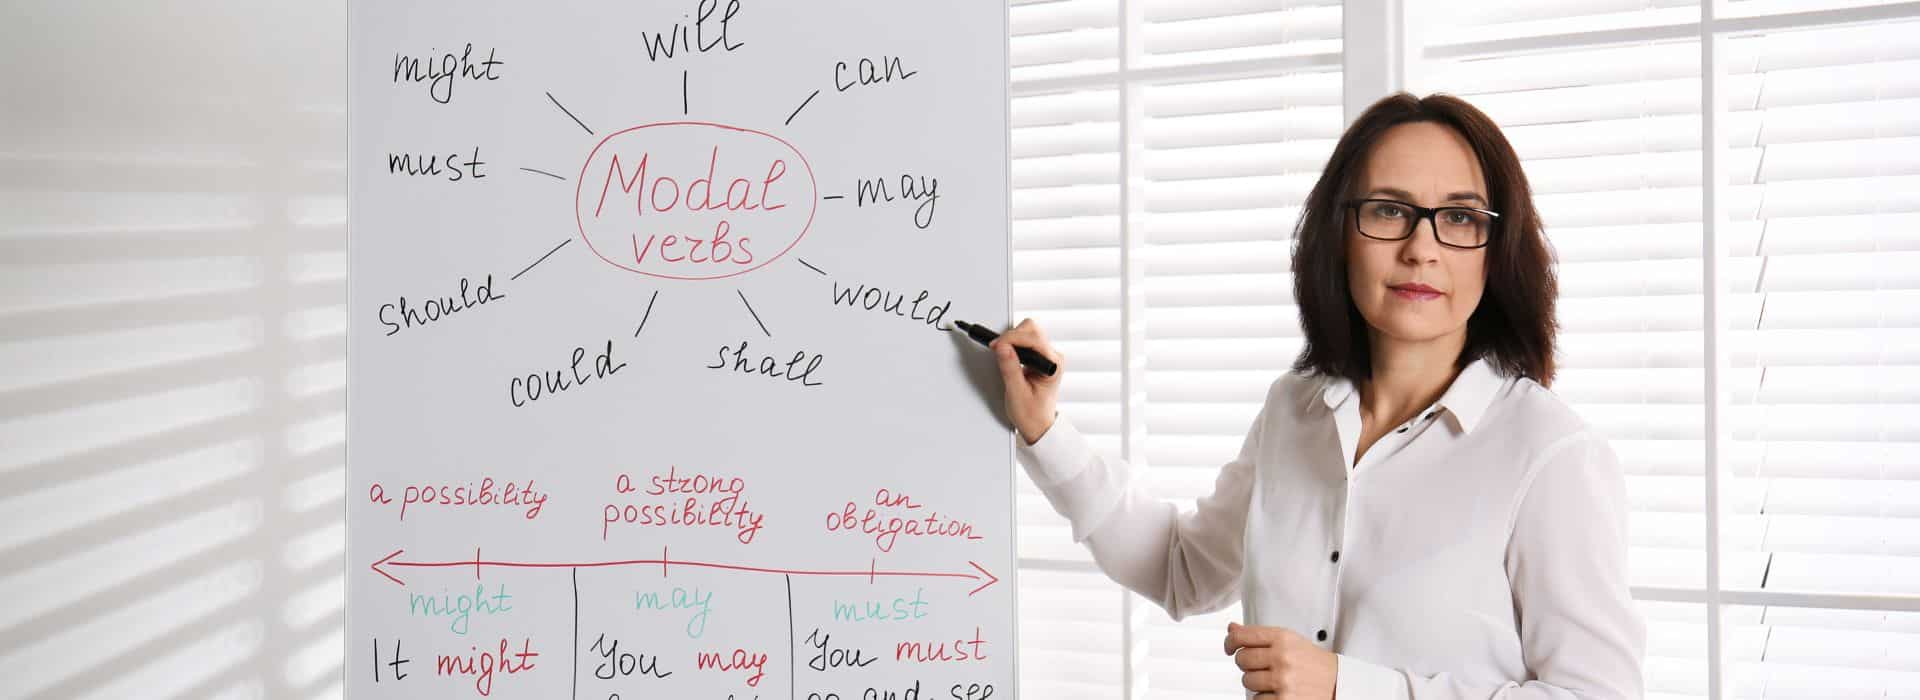 will
might
can
must
Modal
verbs
may
should
would
could
shall
a possibility
a strong
possibility
an
obligation
might
may
must
It might
You may
You must
go and see